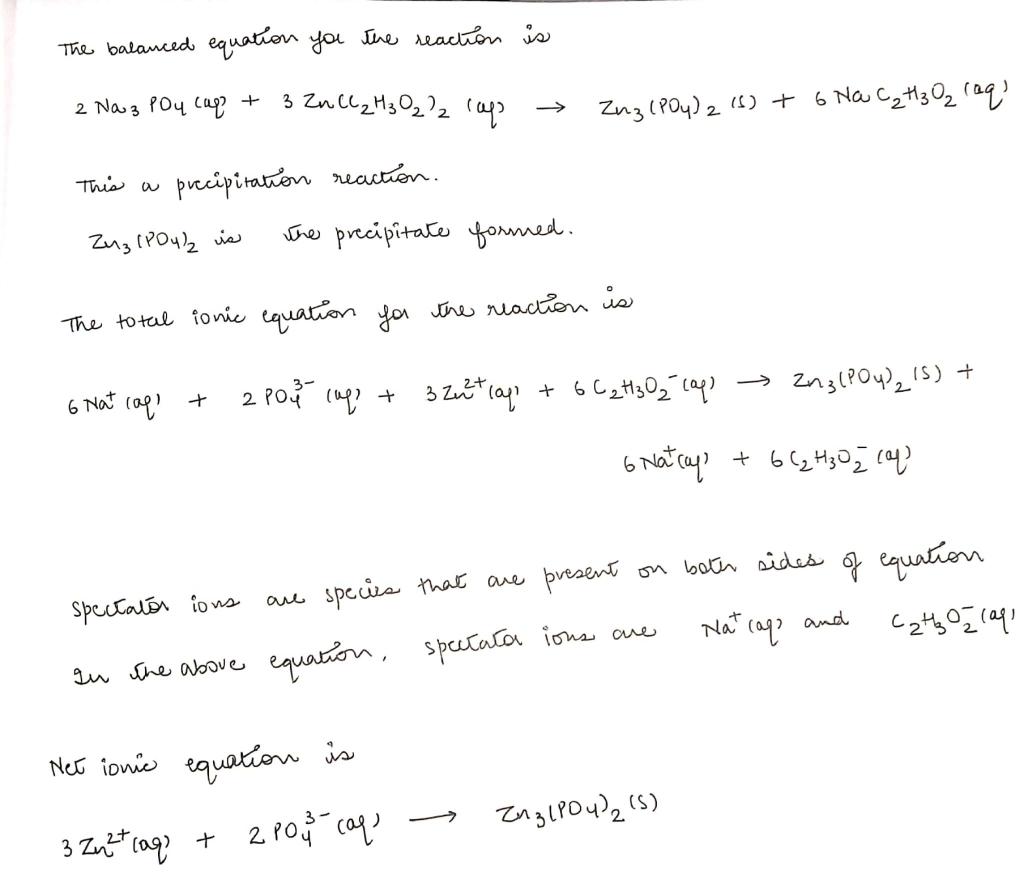 The balanced equation for the reaction is
2 Na3 PO4 (aq) + 3 Zn(C2H3O2)2 (aq) → Zn3(PO4)2 (s) + 6 NaC2H3O2 (aq)
This a precipitation reaction.
Zn3(PO4)2 is the precipitate formed.
The total ionic equation for the reaction is
6 Na+ (aq) + 2 PO4^3- (aq) + 3 Zn^2+ (aq) + 6 C2H3O2^- (aq) → Zn3(PO4)2 (s) +
6 Na+ (aq) + 6 C2H3O2^- (aq)
Spectator ions are species that are present on both sides of equation
In the above equation, spectator ions are Na+ (aq) and C2H3O2^- (aq)
Net ionic equation is
3 Zn^2+ (aq) + 2 PO4^3- (aq) → Zn3(PO4)2 (s)